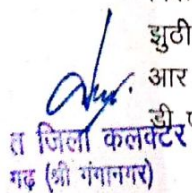 झुठी
आर
डी
त जिला कलक्टर
गढ़ (श्री गंगानगर)